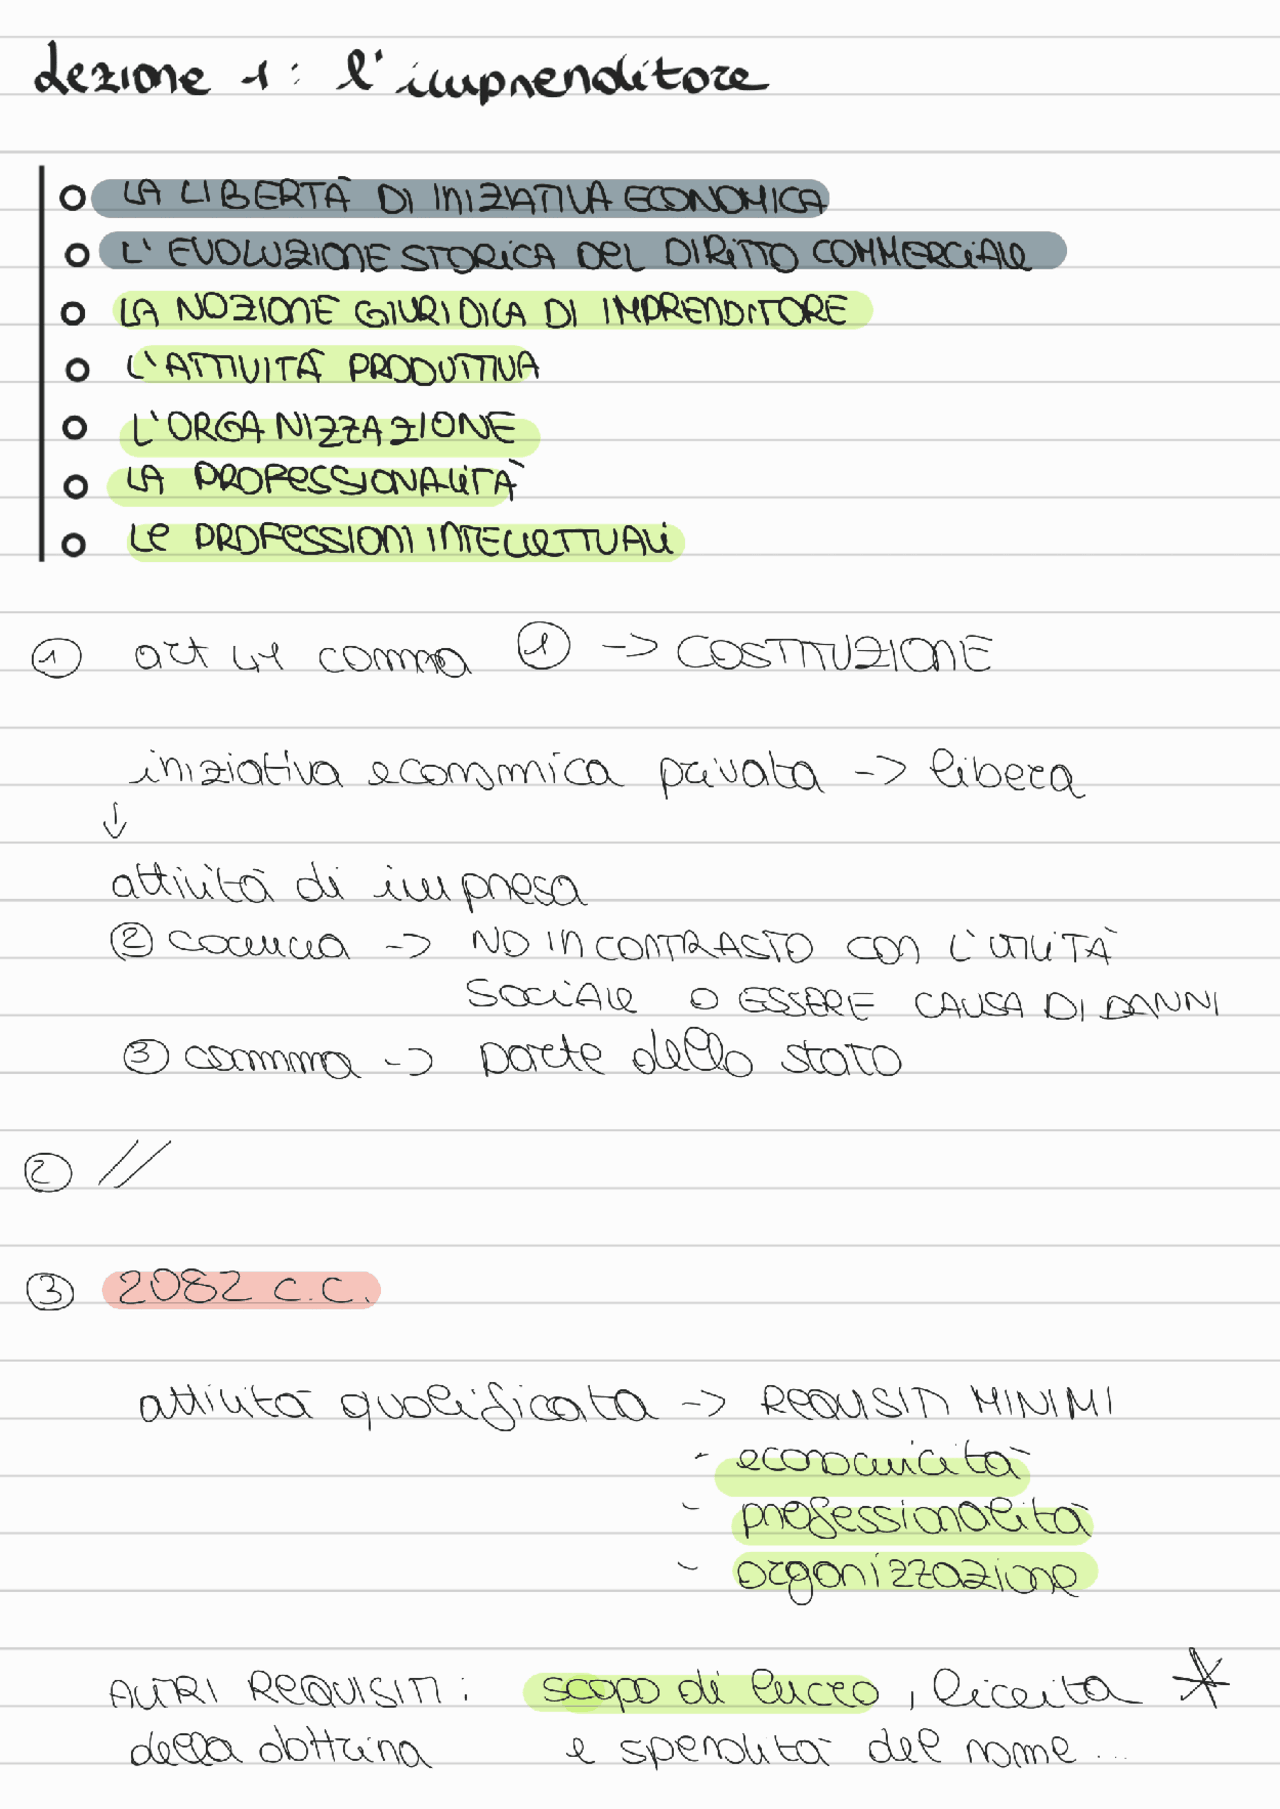 Lezione 1: l'imprenditore
LA LIBERTÀ DI INIZIATIVA ECONOMICA
L'EVOLUZIONE STORICA DEL DIRITTO COMMERCIALE
LA NOZIONE GIURIDICA DI IMPRENDITORE
L'ATTIVITÀ PRODUTTIVA
L'ORGANIZZAZIONE
LA PROFESSIONALITÀ
LE PROFESSIONI INTELLETTUALI
① art 41 comma ① -> COSTITUZIONE
iniziativa economica privata -> libera
↓
attività di impresa
② comma -> NO IN CONTRASTO CON L'UTILITÀ
SOCIALE O ESSERE CAUSA DI DANNI
③ comma -> parte dello stato
② //
③ 2082 C.C.
attività qualificata -> REQUISITI MINIMI
- economicità
- professionalità
- organizzazione
ALTRI REQUISITI: scopo di lucro, liceità *
della dottrina e spendita del nome...